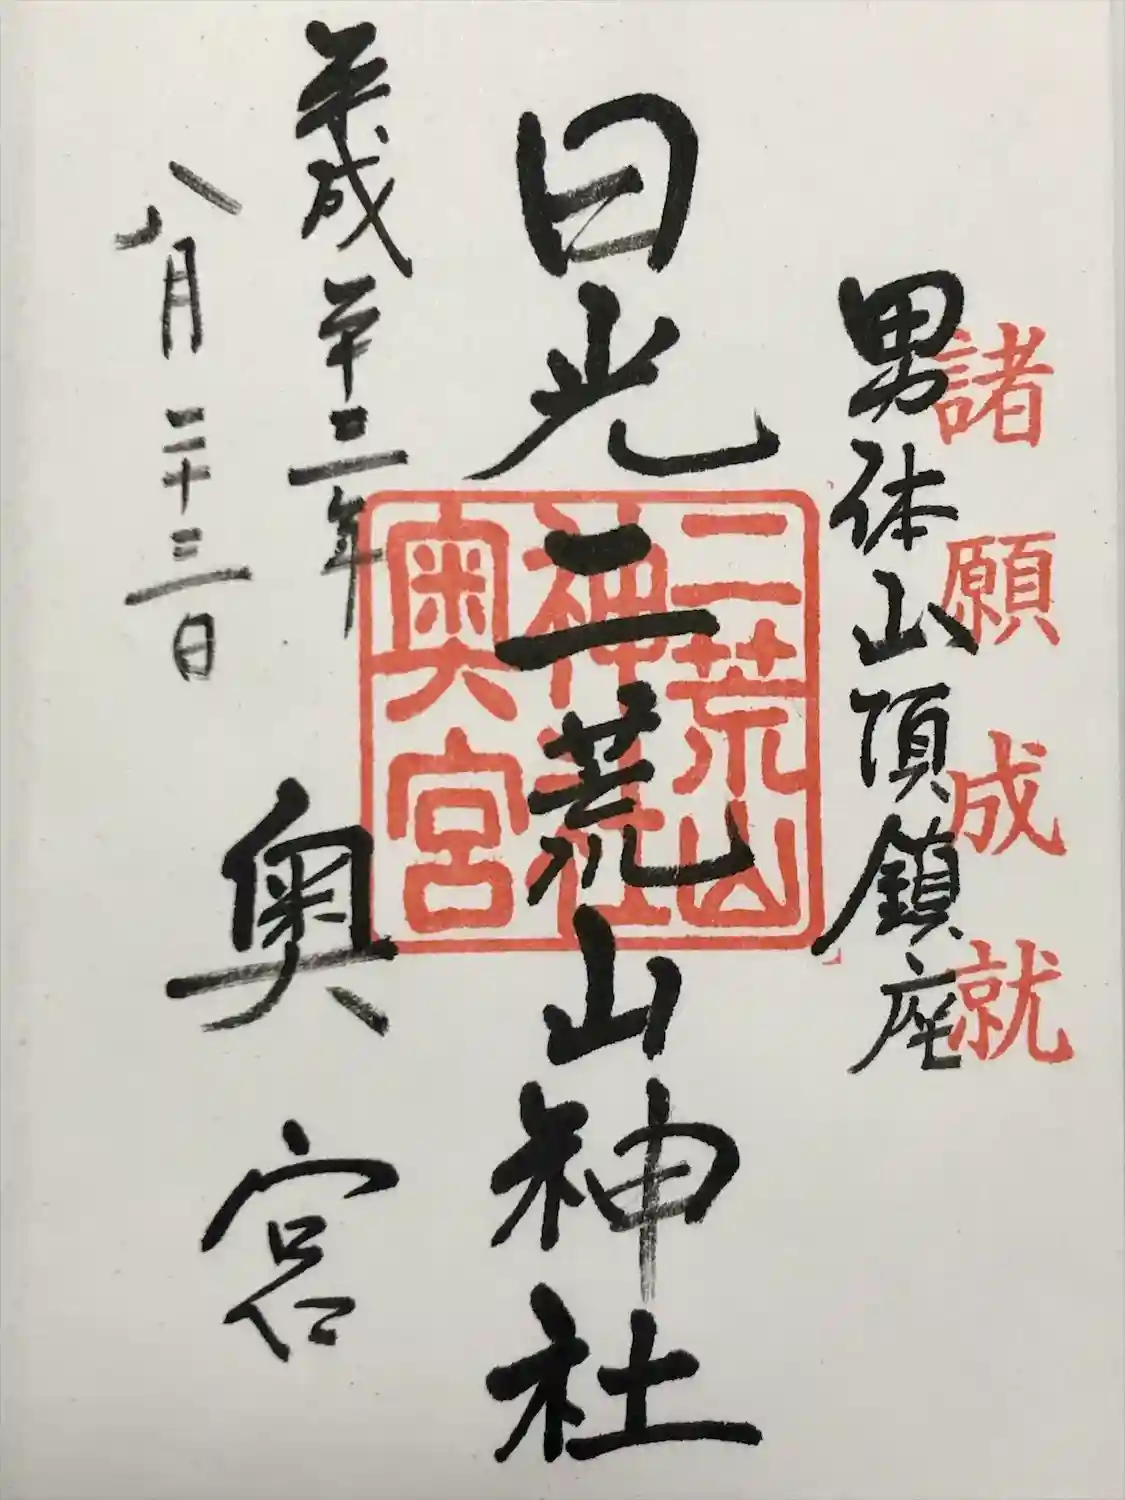 諸願成就
男体山頂鎮座
日光二荒山神社
二荒山
神社
奥宮
奥宮
平成二十二年
八月二十三日